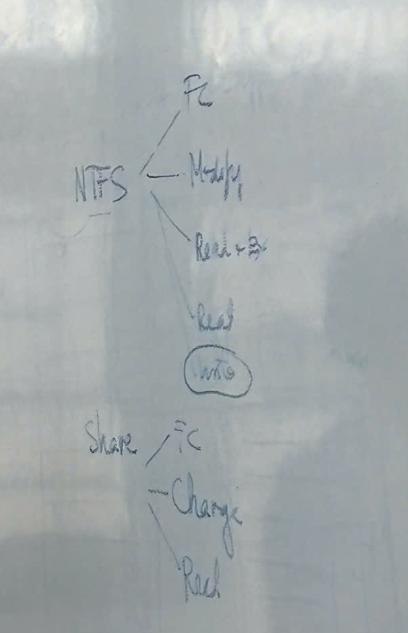 FC
NTFS
Modify
Read + Ex
Read
Write
Share
FC
Change
Read